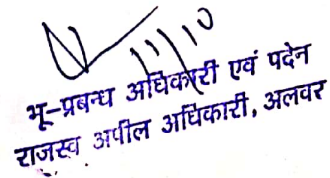 11/10
भू-प्रबन्ध अधिकारी एवं पदेन
राजस्व अपील अधिकारी, अलवर